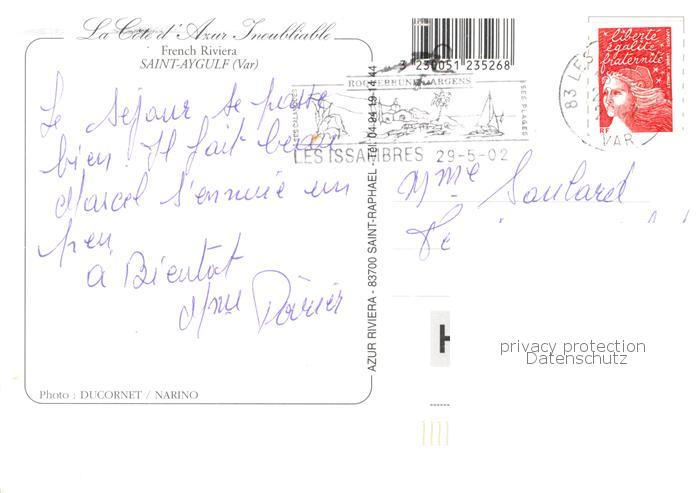 La Côte d'Azur Inoubliable
French Riviera
SAINT-AYGULF (Var)
Le séjour se passe
bien. Il fait beau
Marcel s'ennuie un
peu
à Bientot
Mme Périer
Photo : DUCORNET / NARINO
AZUR RIVIERA - 83700 SAINT-RAPHAEL - Tél. 04 94 19 14 44
3 230051 235268
ROQUEBRUNE S/ARGENS
SES PLAGES
LES ISSAMBRES 29-5-02
83 LES
VAR
liberté
égalité
fraternité
RF
Mme Soulard
privacy protection
Datenschutz